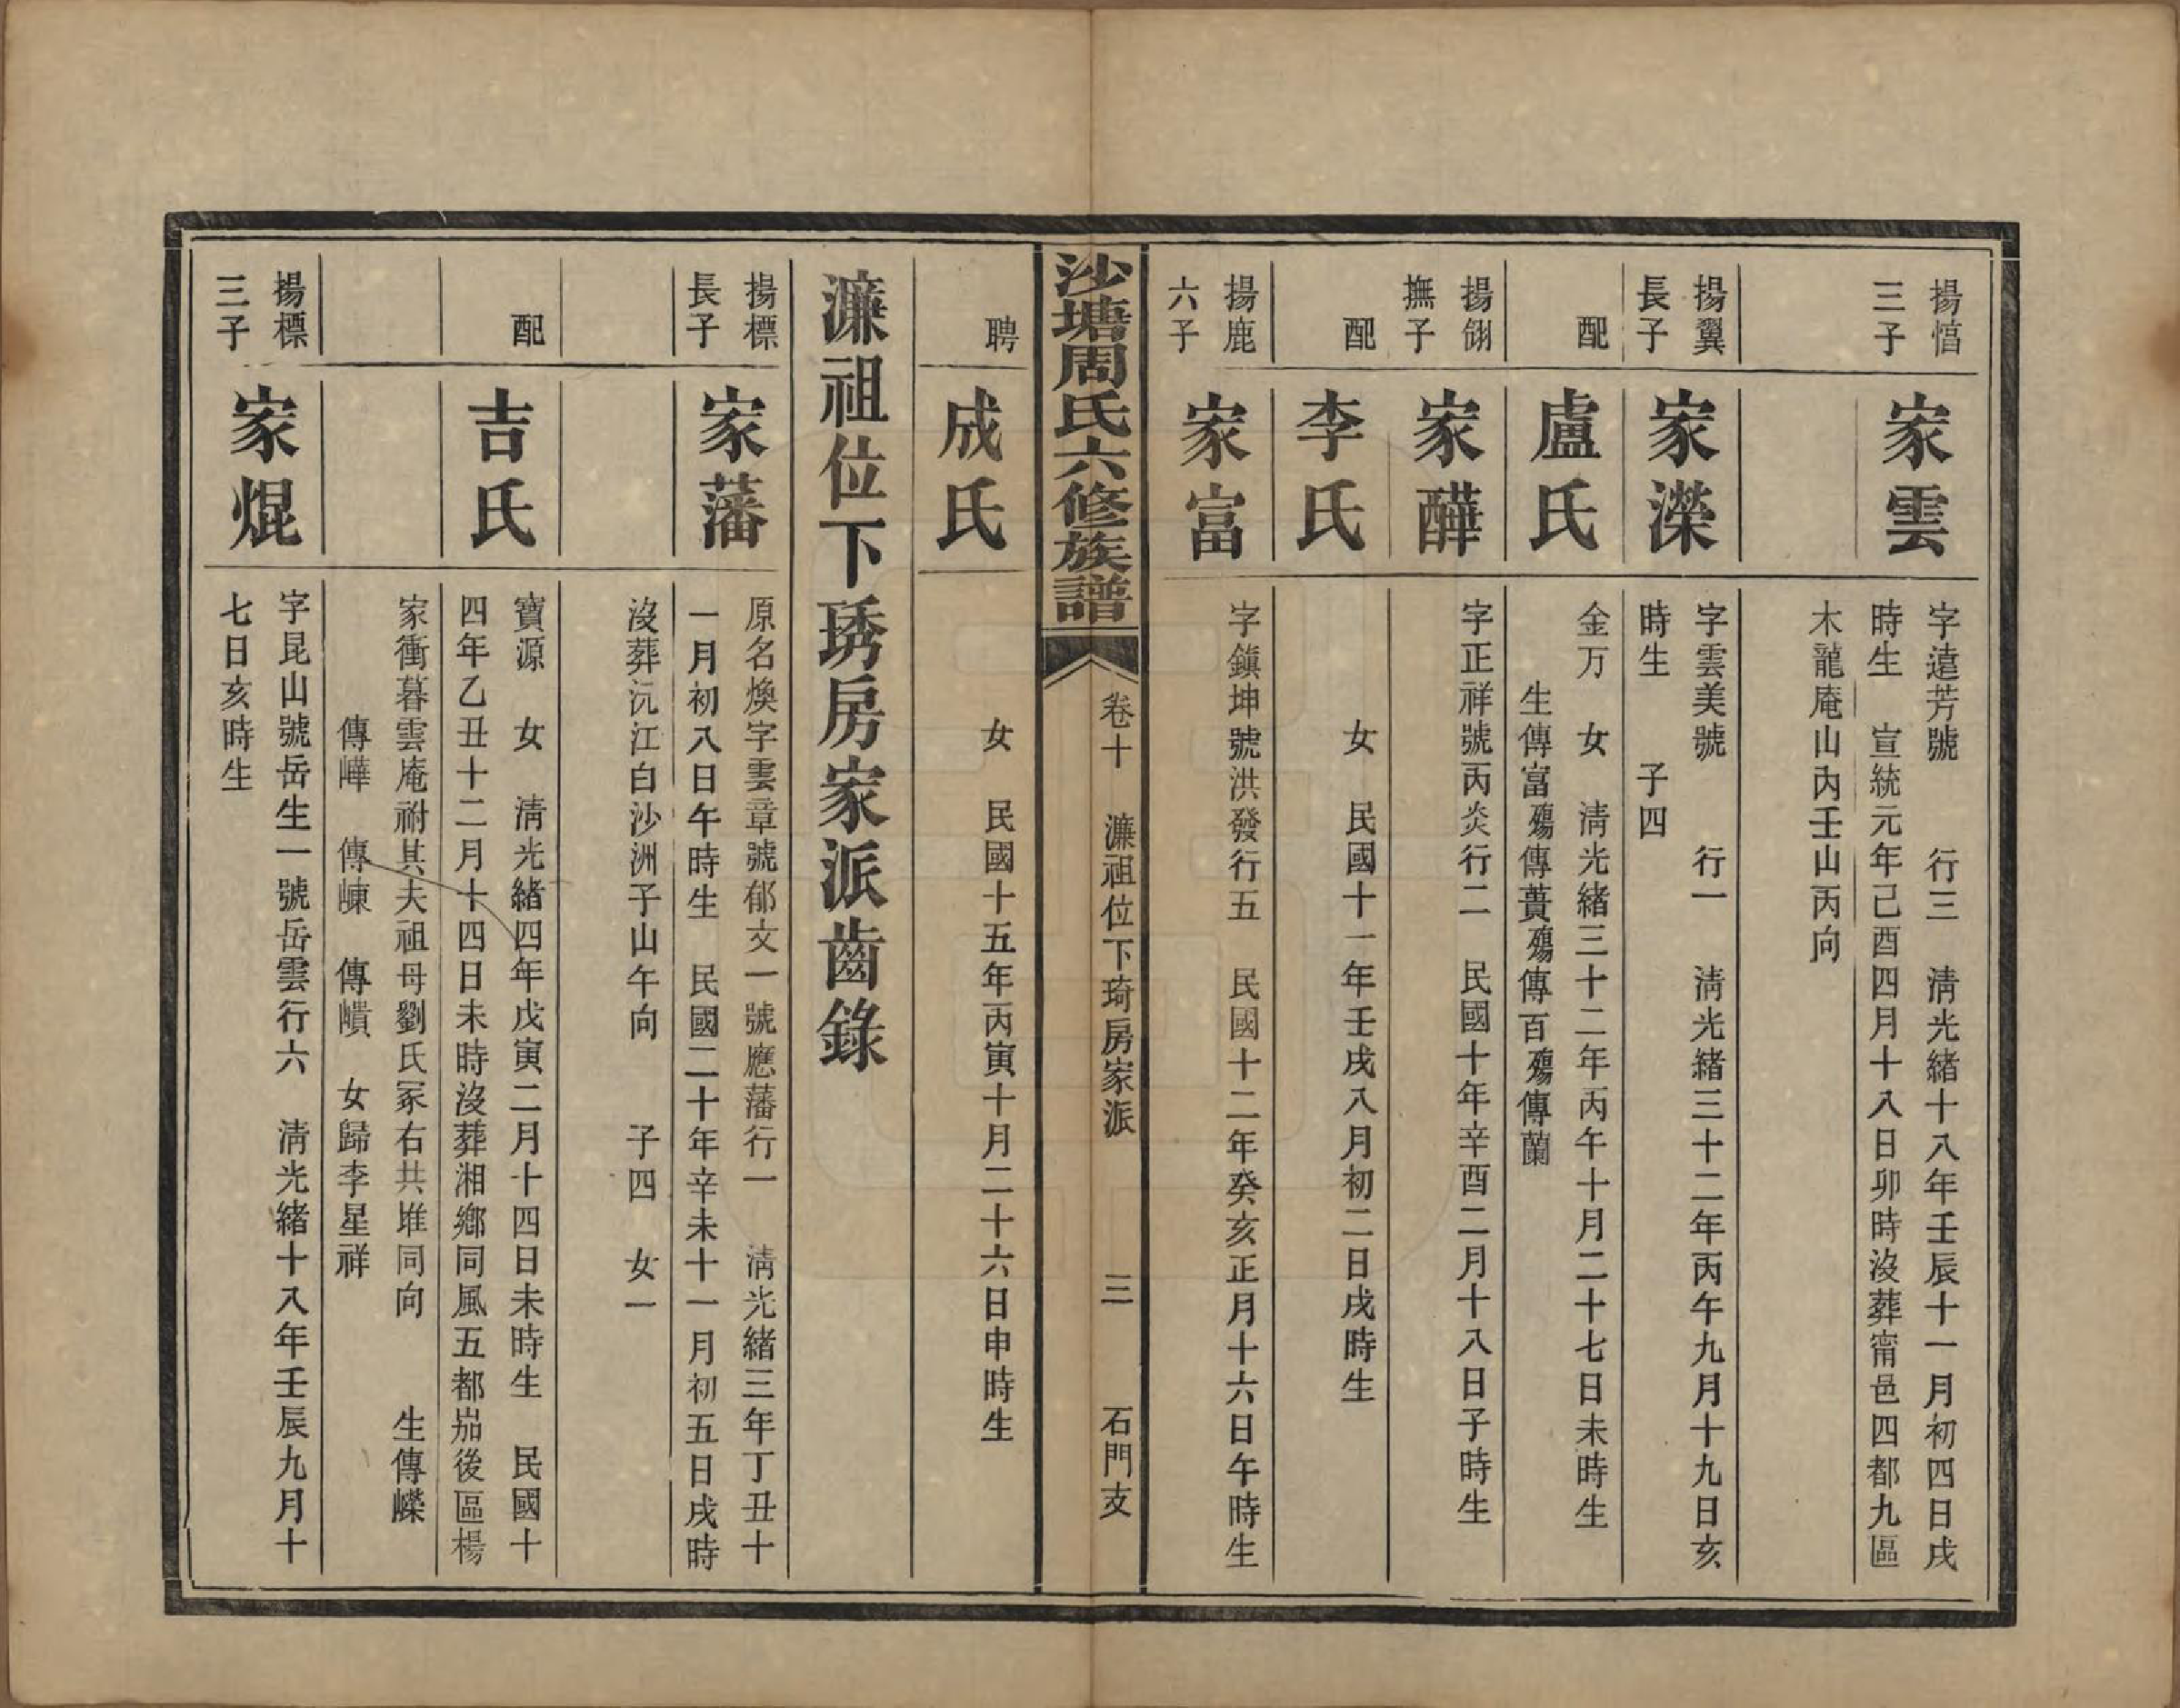 揚㥾
三子
家雲
字遠芳號　　行三　清光緒十八年壬辰十一月初四日戌
時生　宣統元年己酉四月十八日卯時沒葬甯邑四都九區
木龍庵山內壬山丙向
揚翼
長子
家濚
字雲美號　　行一　清光緒三十二年丙午九月十九日亥
時生　　子四
配
盧氏
金万　女　清光緒三十二年丙午十月二十七日未時生
生傳富殤傳蕢殤傳百殤傳蘭
揚翎
撫子
家韡
字正祥號丙炎行二　民國十年辛酉二月十八日子時生
配
李氏
女　民國十一年壬戌八月初二日戌時生
揚鹿
六子
家富
字鎮坤號洪發行五　民國十二年癸亥正月十六日午時生
沙塘周氏六修族譜
卷十　濂祖位下琦房家派　　三　　石門支
聘
成氏
女　民國十五年丙寅十月二十六日申時生
濂祖位下琇房家派齒錄
揚標
長子
家藩
原名煥字雲章號郁文一號應藩行一　清光緒三年丁丑十
一月初八日午時生　民國二十年辛未十一月初五日戌時
沒葬沅江白沙洲子山午向　　子四　女一
配
吉氏
寶源　女　清光緒四年戊寅二月十四日未時生　民國十
四年乙丑十二月十四日未時沒葬湘鄉同風五都岊後區楊
家衝暮雲庵祔其夫祖母劉氏冢右共堆同向　　生傳嶸
傳嶂　傳崠　傳嶾　女歸李星祥
揚標
三子
家焜
字昆山號岳生一號岳雲行六　清光緒十八年壬辰九月十
七日亥時生